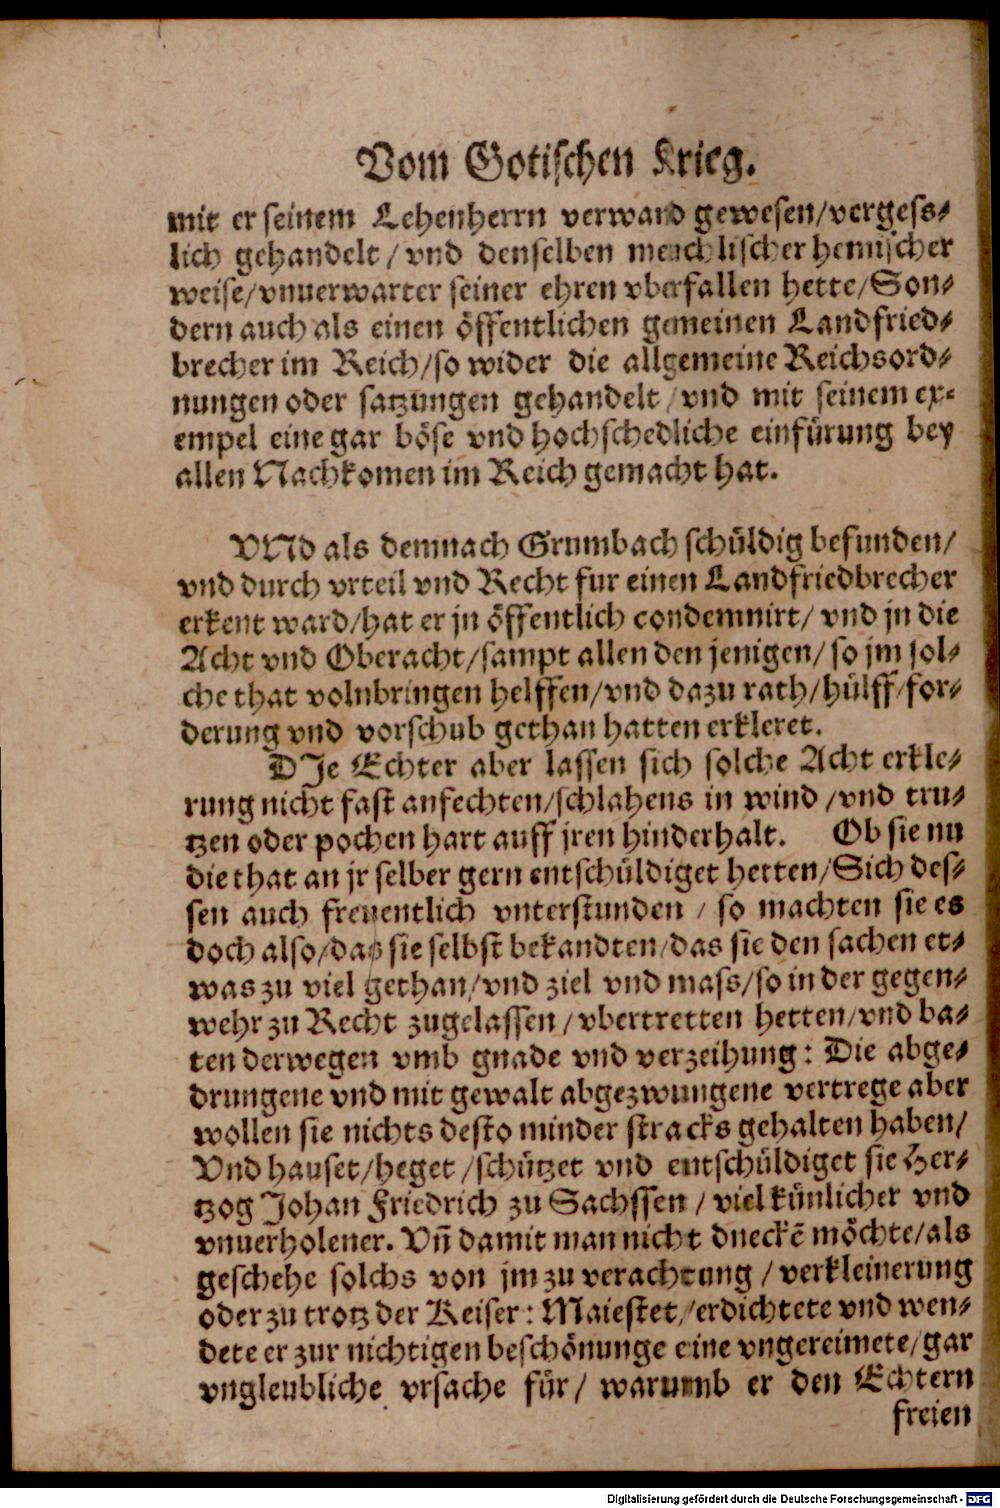 Vom Gotischen Krieg.
mit er seinem Lehenherrn verwand gewesen/vergess⸗
lich gehandelt/vnd denselben meuchlischer hemischer
weise/vnuerwarter seiner ehren vberfallen hette/Son⸗
dern auch als einen öffentlichen gemeinen Landfried⸗
brecher im Reich/so wider die allgemeine Reichsord⸗
nungen oder satzungen gehandelt/vnd mit seinem ex⸗
empel eine gar böse vnd hochschedliche einfürung bey
allen Nachkomen im Reich gemacht hat.
VNd als demnach Grumbach schüldig befunden/
vnd durch vrteil vnd Recht fur einen Landfriedbrecher
erkent ward/hat er jn öffentlich condemnirt/vnd jn die
Acht vnd Oberacht/sampt allen den jenigen/so jm sol⸗
che that volnbringen helffen/vnd dazu rath/hülff/for⸗
derung vnd vorschub gethan hatten erkleret.
DJe Echter aber lassen sich solche Acht erkle⸗
rung nicht fast anfechten/schlahens in wind/vnd tru⸗
tzen oder pochen hart auff jren hinderhalt. Ob sie nu
die that an jr selber gern entschüldiget hetten/Sich des⸗
sen auch freuentlich vnterstunden/so machten sie es
doch also/das sie selbst bekandten/das sie den sachen et⸗
was zu viel gethan/vnd ziel vnd mass/so in der gegen⸗
wehr zu Recht zugelassen/vbertretten hetten/vnd ba⸗
ten derwegen vmb gnade vnd verzeihung: Die abge⸗
drungene vnd mit gewalt abgezwungene vertrege aber
wollen sie nichts desto minder stracks gehalten haben/
Vnd hauset/heget/schützet vnd entschüldiget sie Her⸗
tzog Johan Friedrich zu Sachssen/viel künlicher vnd
vnuerholener. Vñ damit man nicht dneckẽ möchte/als
geschehe solchs von jm zu verachtung/verkleinerung
oder zu trotz der Keiser: Maiestet/erdichtete vnd wen⸗
dete er zur nichtigen beschönunge eine vngereimete/gar
vngleubliche vrsache für/warumb er den Echtern
freien
Digitalisierung gefördert durch die Deutsche Forschungsgemeinschaft - DFG